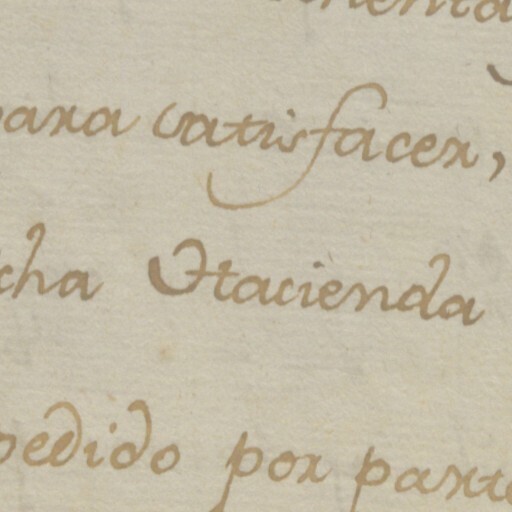 para satisfacer,
cha Hacienda
pedido por parte